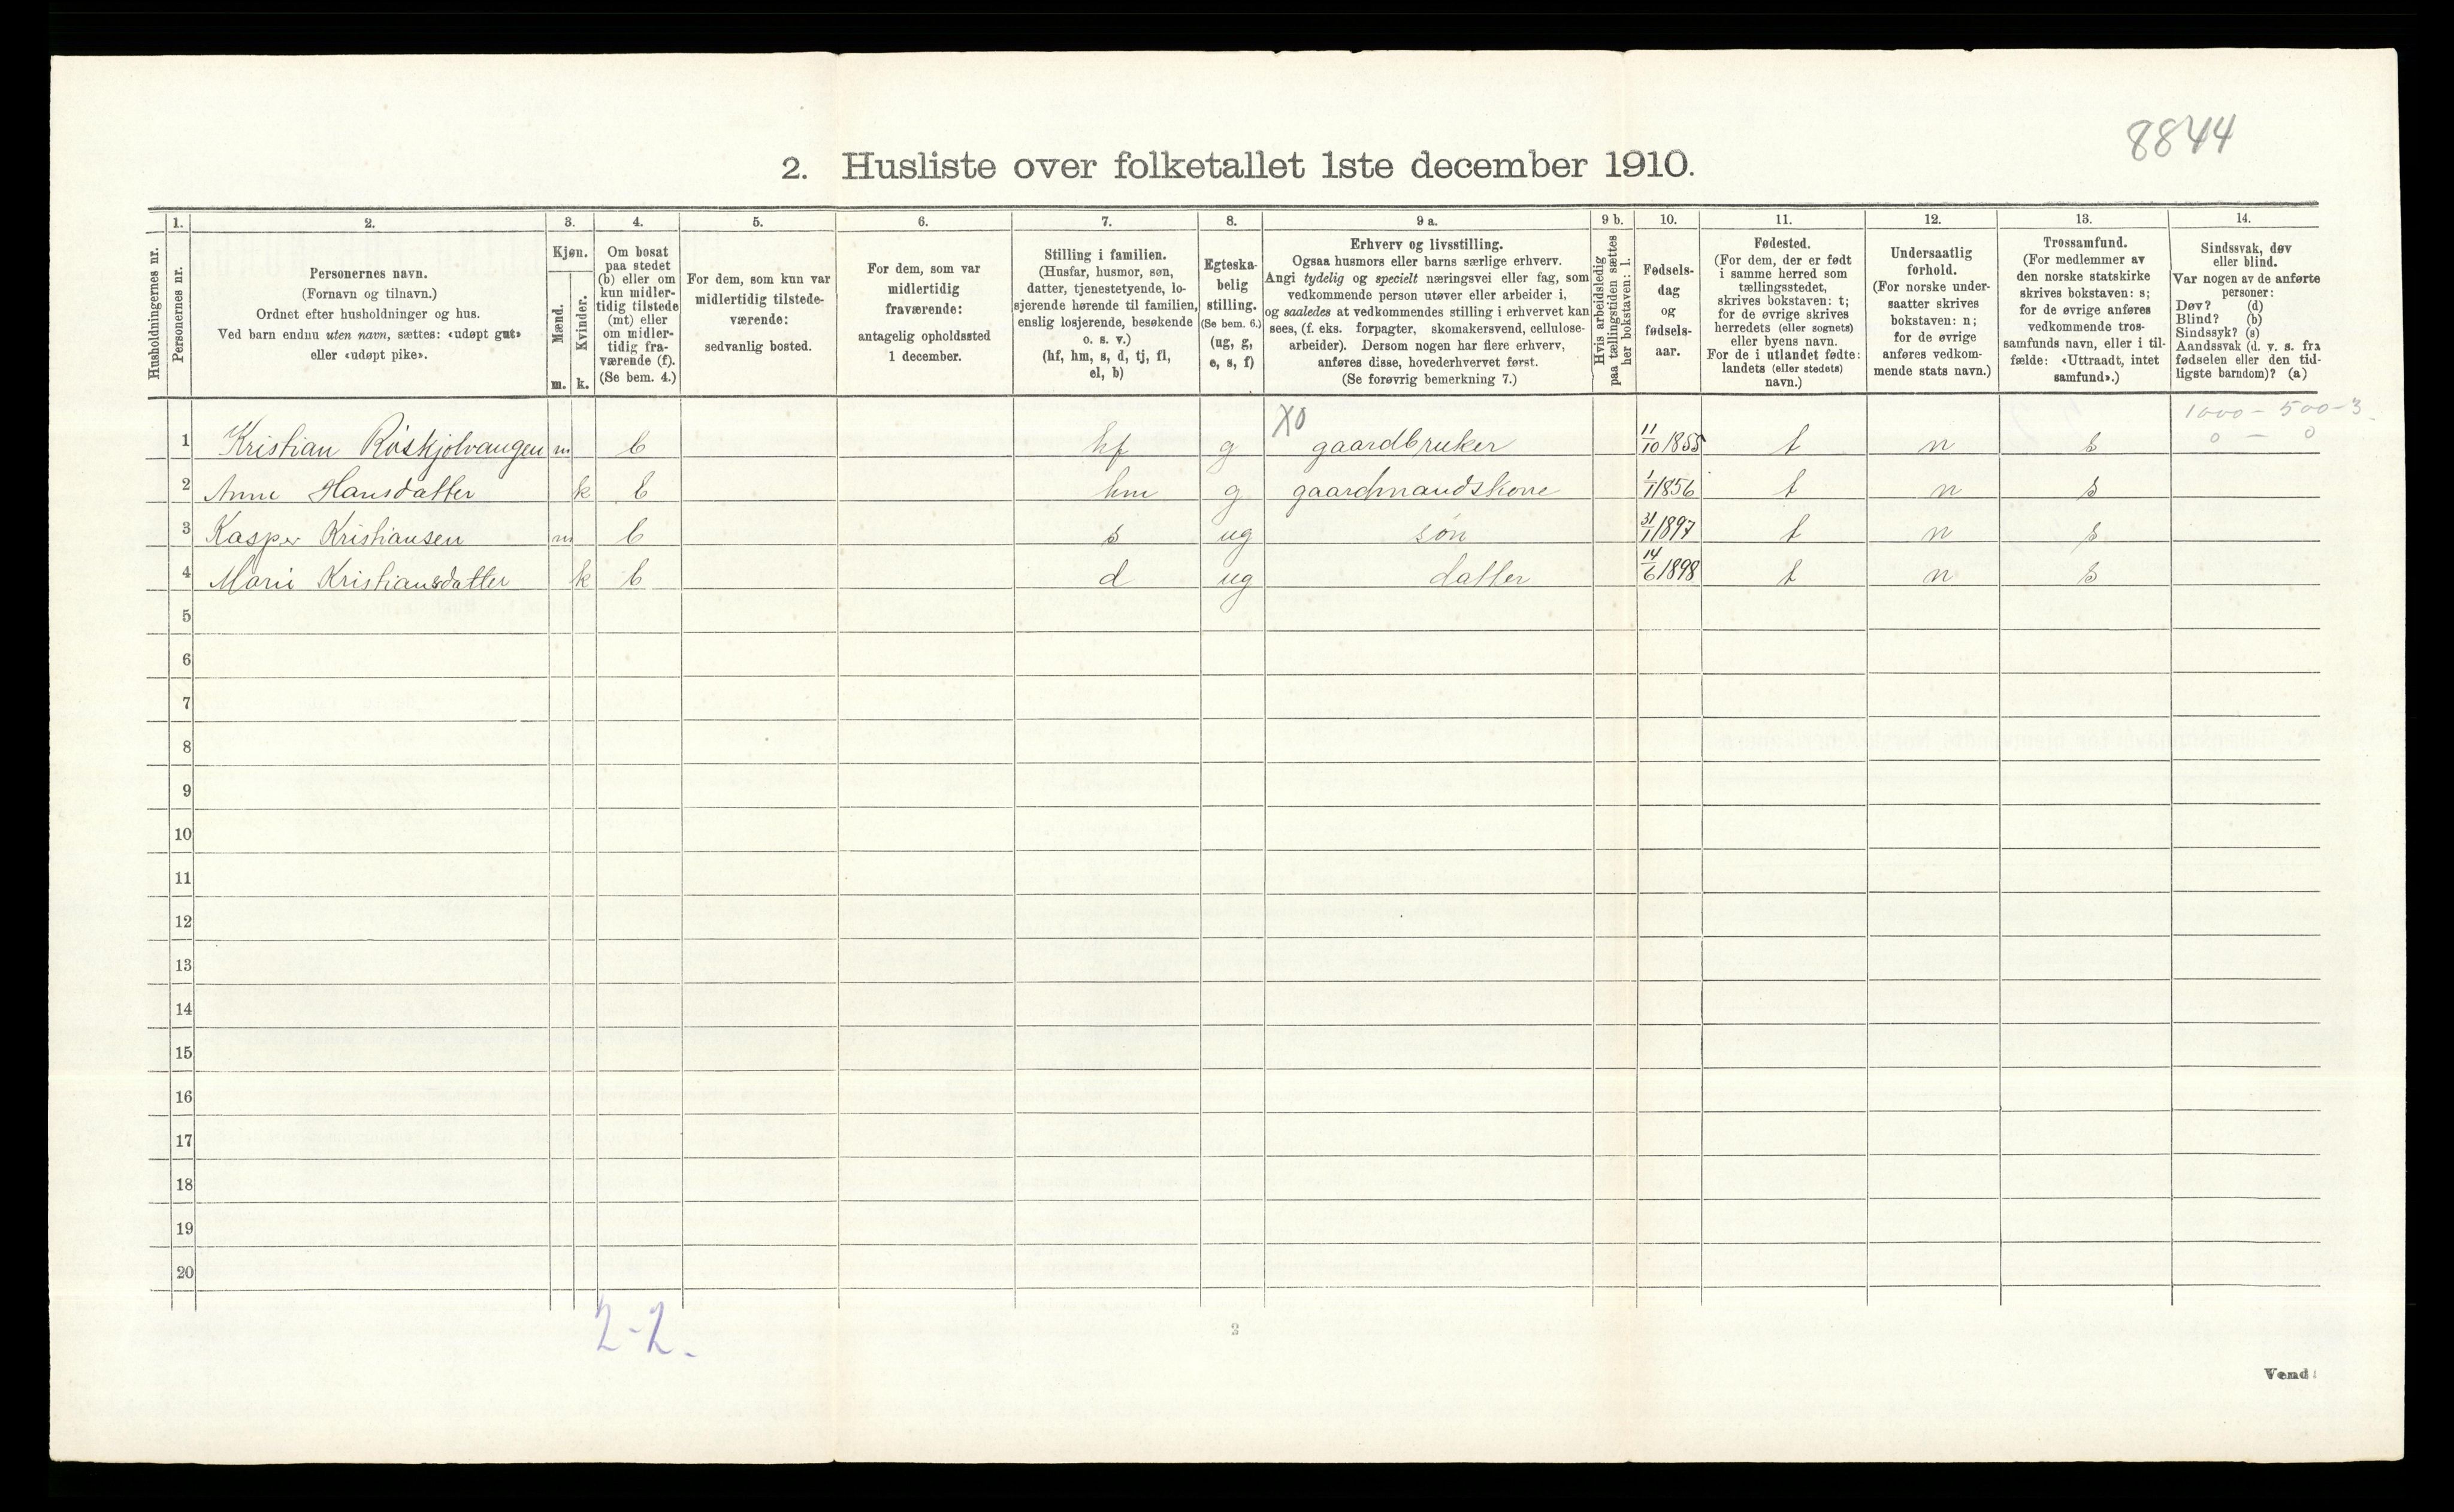 8844
2. Husliste over folketallet 1ste december 1910.
Husholdningernes nr.
1.
Personernes nr.
2.
Personernes navn.
(Fornavn og tilnavn.)
Ordnet efter husholdninger og hus.
Ved barn endnu uten navn, sættes: «udøpt gut»
eller «udøpt pike».
3.
Kjøn.
Mænd.
Kvinder.
m. k.
4.
Om bosat
paa stedet
(b) eller om
kun midler-
tidig tilstede
(mt) eller
om midler-
tidig fra-
værende (f).
(Se bem. 4.)
5.
For dem, som kun var
midlertidig tilstede-
værende:
sedvanlig bosted.
6.
For dem, som var
midlertidig
fraværende:
antagelig opholdssted
1 december.
7.
Stilling i familien.
(Husfar, husmor, søn,
datter, tjenestetyende, lo-
sjerende hørende til familien,
enslig losjerende, besøkende
o. s. v.)
(hf, hm, s, d, tj, fl,
el, b)
8.
Egteska-
belig
stilling.
(Se bem. 6.)
(ug, g,
e, s, f)
9 a.
Erhverv og livsstilling.
Ogsaa husmors eller barns særlige erhverv.
Angi tydelig og specielt næringsvei eller fag, som
vedkommende person utøver eller arbeider i,
og saaledes at vedkommendes stilling i erhvervet kan
sees, (f. eks. forpagter, skomakersvend, cellulose-
arbeider). Dersom nogen har flere erhverv,
anføres disse, hovederhvervet først.
(Se forøvrig bemerkning 7.)
9 b.
Hvis arbeidsledig
paa tællingstiden sættes
her bokstaven: l.
10.
Fødsels-
dag
og
fødsels-
aar.
11.
Fødested.
(For dem, der er født
i samme herred som
tællingsstedet,
skrives bokstaven: t;
for de øvrige skrives
herredets (eller sognets)
eller byens navn.
For de i utlandet fødte:
landets (eller stedets)
navn.)
12.
Undersaatlig
forhold.
(For norske under-
saatter skrives
bokstaven: n;
for de øvrige
anføres vedkom-
mende stats navn.)
13.
Trossamfund.
(For medlemmer av
den norske statskirke
skrives bokstaven: s;
for de øvrige anføres
vedkommende tros-
samfunds navn, eller i til-
fælde: «Uttraadt, intet
samfund».)
14.
Sindssvak, døv
eller blind.
Var nogen av de anførte
personer:
Døv? (d)
Blind? (b)
Sindssyk? (s)
Aandssvak (d. v. s. fra
fødselen eller den tid-
ligste barndom)? (a)
X0
1000 - 500 - 3
0 - 0
1 Kristian Röskjolvangen m b hf g gaardbruker 11/10 1855 t n s
2 Anne Hansdatter k b hm g gaardmandskone 1/1 1856 t n s
3 Kasper Kristiansen m b s ug søn 31/1 1897 t n s
4 Marie Kristiansdatter k b d ug datter 14/6 1898 t n s
5
6
7
8
9
10
11
12
13
14
15
16
17
18
19
20
2-2.
2
Vend!